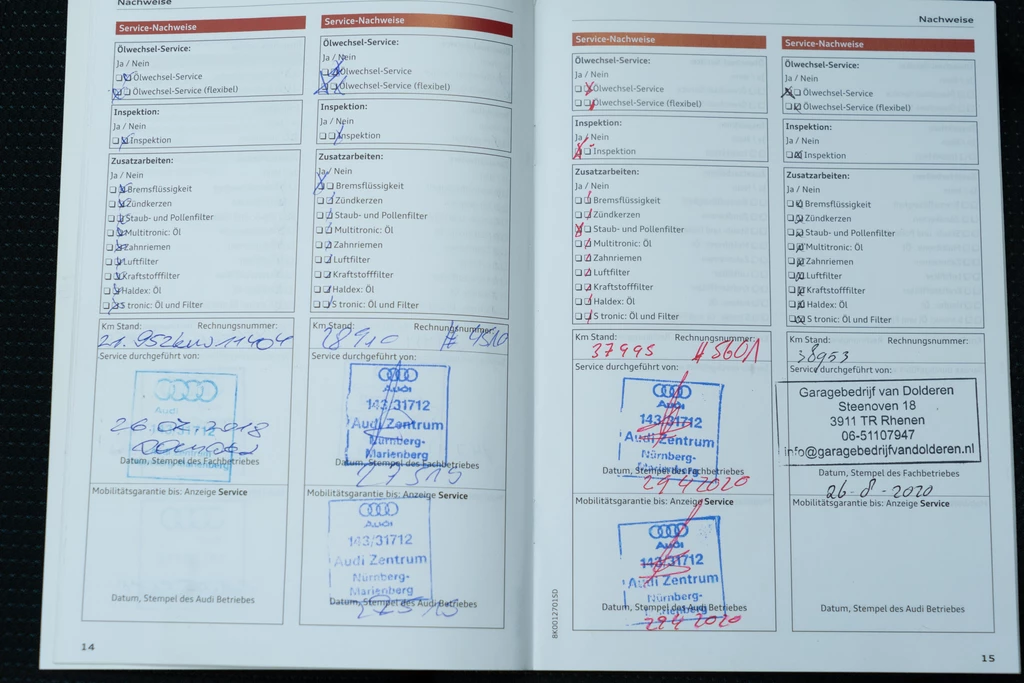 Nachweise
Service-Nachweise
Ölwechsel-Service:
Ja / Nein
Ölwechsel-Service
Ölwechsel-Service (flexibel)
Inspektion:
Ja / Nein
Inspektion
Zusatzarbeiten:
Ja / Nein
Bremsflüssigkeit
Zündkerzen
Staub- und Pollenfilter
Multitronic: Öl
Zahnriemen
Luftfilter
Kraftstofffilter
Haldex: Öl
S tronic: Öl und Filter
Km Stand: Rechnungsnummer:
21.952km 11404
Service durchgeführt von:
Audi
26.02.2018
Datum, Stempel des Fachbetriebes
Mobilitätsgarantie bis: Anzeige Service
Datum, Stempel des Audi Betriebes
14
Service-Nachweise
Ölwechsel-Service:
Ja / Nein
Ölwechsel-Service
Ölwechsel-Service (flexibel)
Inspektion:
Ja / Nein
Inspektion
Zusatzarbeiten:
Ja / Nein
Bremsflüssigkeit
Zündkerzen
Staub- und Pollenfilter
Multitronic: Öl
Zahnriemen
Luftfilter
Kraftstofffilter
Haldex: Öl
S tronic: Öl und Filter
Km Stand: Rechnungsnummer:
28910 # 4510
Service durchgeführt von:
Audi
143/31712
Audi Zentrum
Nürnberg-
Marienberg
Datum, Stempel des Fachbetriebes
27519
Mobilitätsgarantie bis: Anzeige Service
Audi
143/31712
Audi Zentrum
Nürnberg-
Marienberg
Datum, Stempel des Audi Betriebes
27519
Nachweise
Service-Nachweise
Ölwechsel-Service:
Ja / Nein
Ölwechsel-Service
Ölwechsel-Service (flexibel)
Inspektion:
Ja / Nein
Inspektion
Zusatzarbeiten:
Ja / Nein
Bremsflüssigkeit
Zündkerzen
Staub- und Pollenfilter
Multitronic: Öl
Zahnriemen
Luftfilter
Kraftstofffilter
Haldex: Öl
S tronic: Öl und Filter
Km Stand: Rechnungsnummer:
37995 #5601
Service durchgeführt von:
Audi
143/31712
Audi Zentrum
Nürnberg-
Marienberg
Datum, Stempel des Fachbetriebes
29.4.2020
Mobilitätsgarantie bis: Anzeige Service
Audi
143/31712
Audi Zentrum
Nürnberg-
Marienberg
Datum, Stempel des Audi Betriebes
29.4.2020
8K0012701SD
Service-Nachweise
Ölwechsel-Service:
Ja / Nein
Ölwechsel-Service
Ölwechsel-Service (flexibel)
Inspektion:
Ja / Nein
Inspektion
Zusatzarbeiten:
Ja / Nein
Bremsflüssigkeit
Zündkerzen
Staub- und Pollenfilter
Multitronic: Öl
Zahnriemen
Luftfilter
Kraftstofffilter
Haldex: Öl
S tronic: Öl und Filter
Km Stand: Rechnungsnummer:
38953
Service durchgeführt von:
Garagebedrijf van Dolderen
Steenoven 18
3911 TR Rhenen
06-51107947
info@garagebedrijfvandolderen.nl
Datum, Stempel des Fachbetriebes
26-8-2020
Mobilitätsgarantie bis: Anzeige Service
Datum, Stempel des Audi Betriebes
15